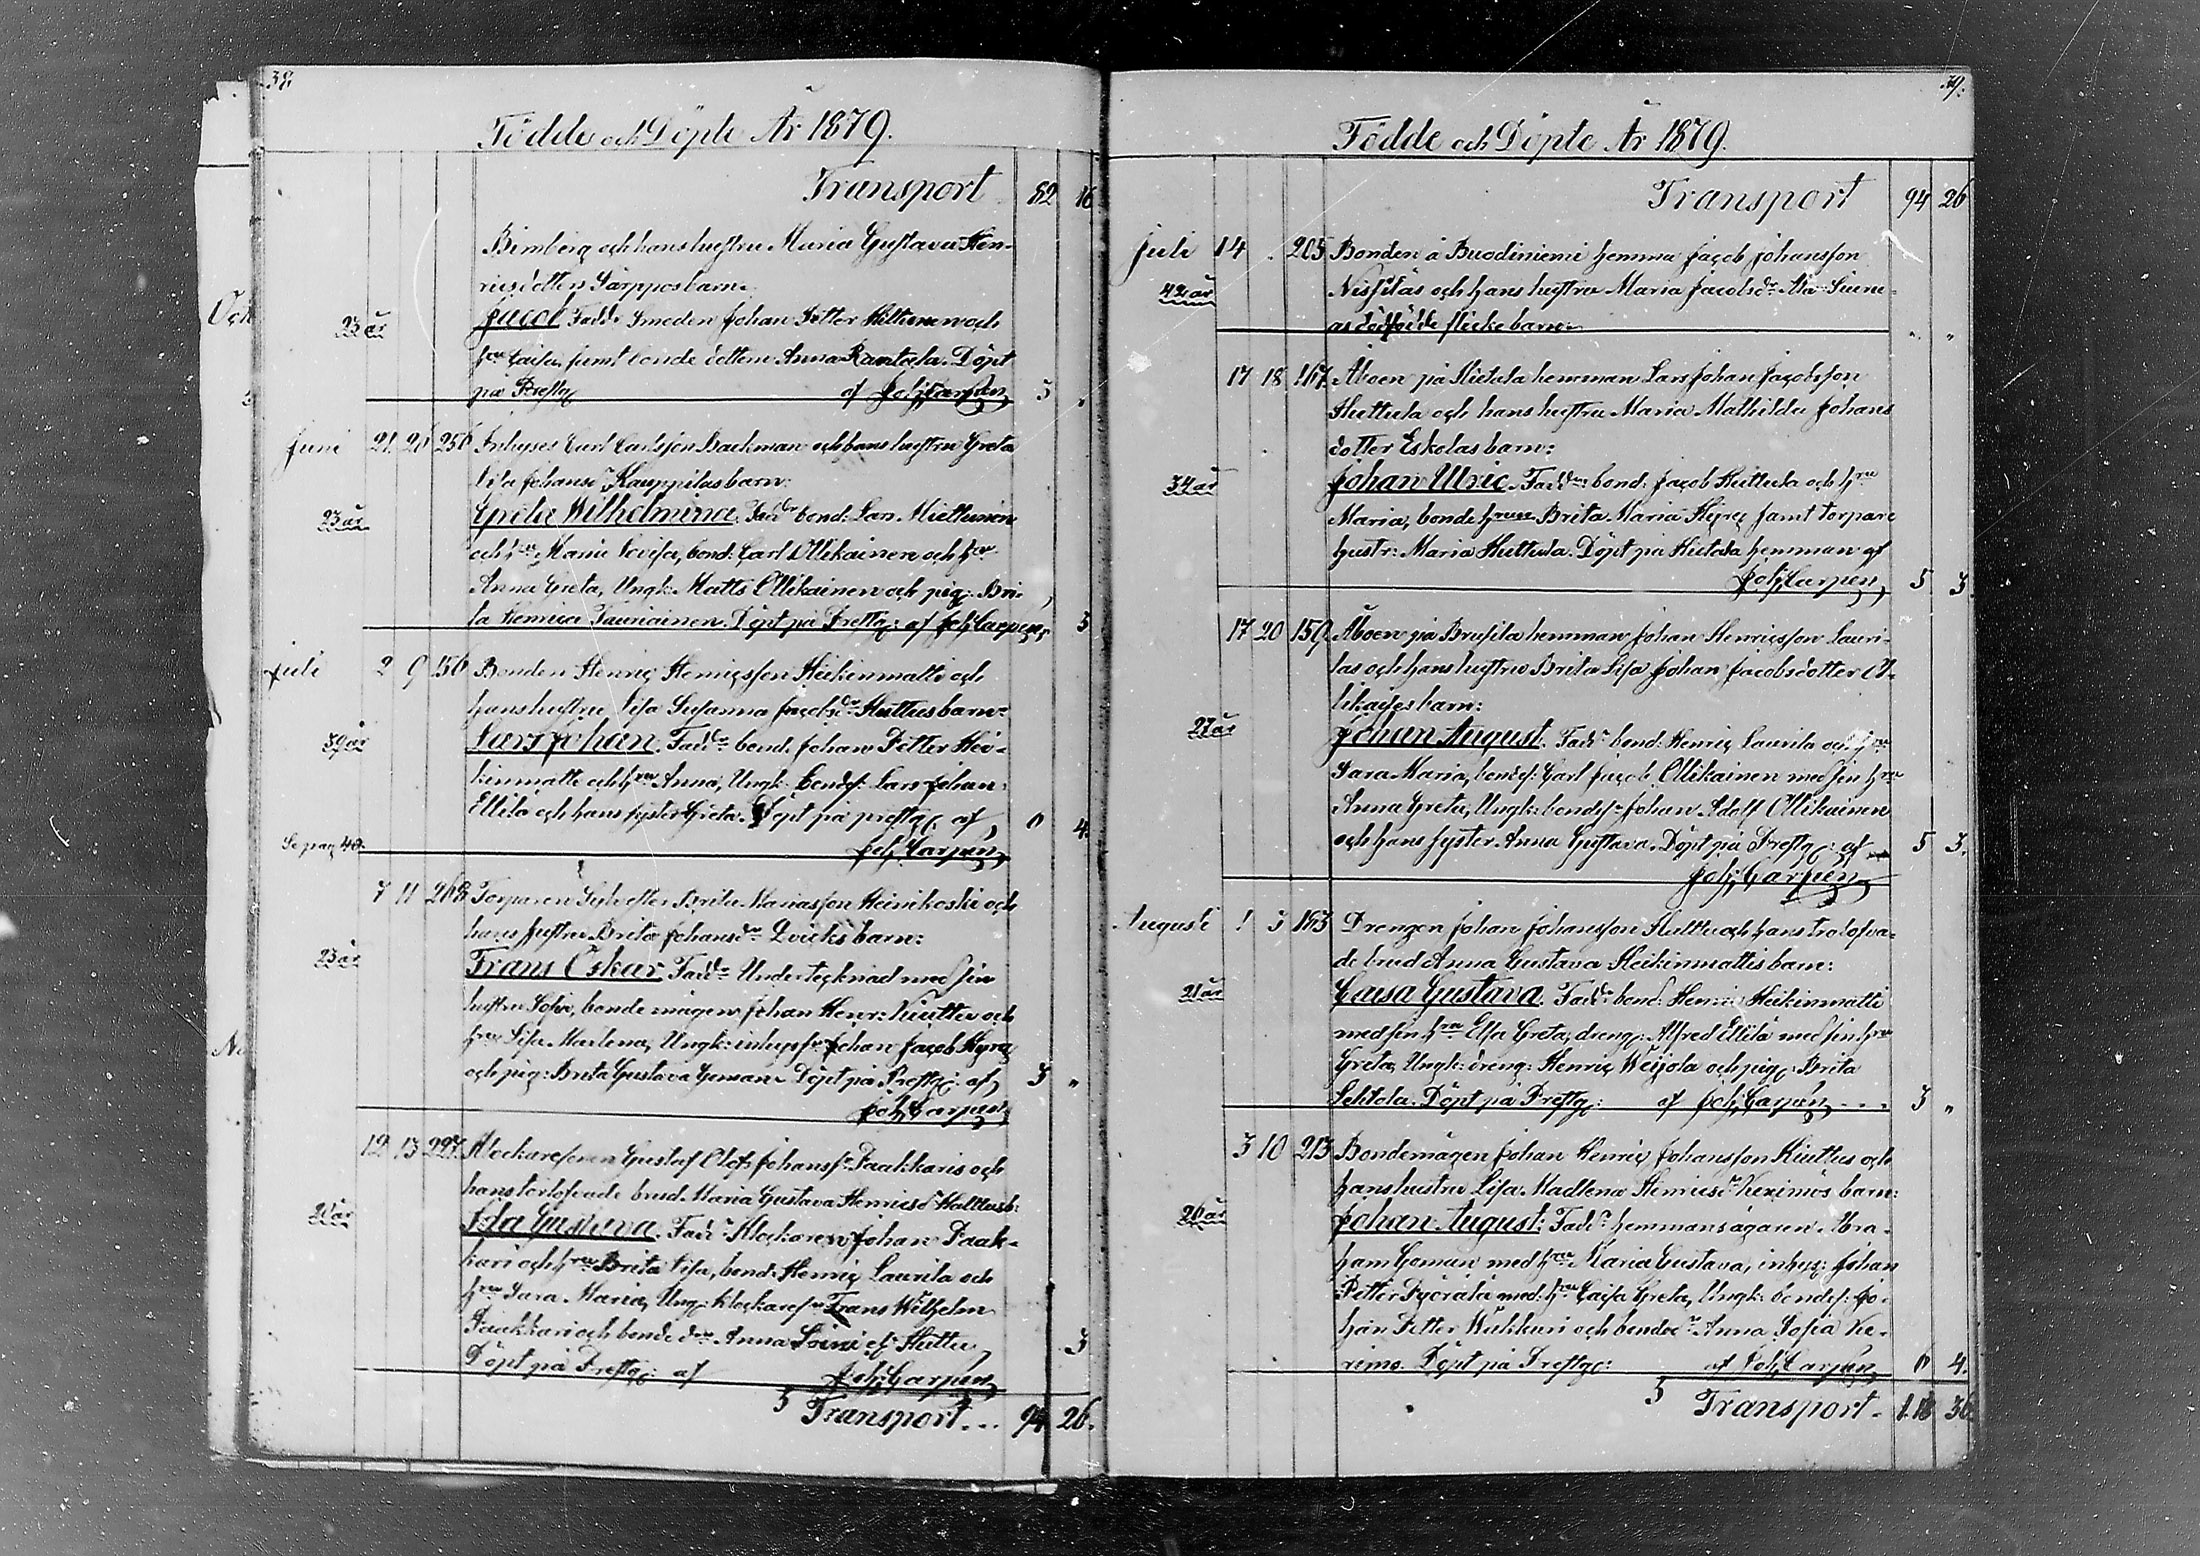 38.
Födde och Döpte År 1879.
Transport 82 16
Bimberg och hans hustru Maria Gustava Hen-
ricsdotter Särppos barn:
23 år
Jacob Fadd: Smeden Johan Petter Hiltunen och
hru Caisa, samt bonde dottern Anna Rantala. Döpt
på Prestg: af Joh: Carpen, 3 „
Juni 21. 20 250 Inhyses Carl Carlsson Backman och hans hustru Greta
Lisa Johansdr Kauppilas barn:
23 år
Greta Wilhelmina. Faddr bond: Lars Miettunen
och hru Maria Lovisa, bond: Carl Ollikainen och hru
Anna Greta, Ungk: Matts Ollikainen och pig: Bri-
ta Henrica Tauriainen. Döpt på Prestg: af Joh: Carpen, 3
Juli 2 9 156 Bonden Henric Henricsson Heikinmatti och
hans hustru Lisa Susanna Jacobsdr Huttus barn:
39 år
Lars Johan. Faddr bond. Johan Petter Hei-
kinmatti och hru Anna, Ungk: bondes: Lars Johan
Ellilä och hans syster Greta. Döpt på prestg: af
Se pag 40.
Joh: Carpen, 0 4.
7 11 268 Torparen Sylvester Brita Mariasson Heinikoski och
hans hustru Brita Johansdr Qvicks barn:
23 år
Frans Oskar. Faddr Undertecknad med sin
hustru Sofia, bondemågen Johan Henr: Kiuttu och
hru Lisa Marlena, Ungk: inhyses Johan Jacob Hyry
och pig: Brita Gustava Goman. Döpt på Prestg: af
Joh: Carpen, 3 „
12 13 227. Klockaresonen Gustaf Olof Johanss: Paakkaris och
hans förlofvade brud Maria Gustava Henricsdr Huttus b:
20 år
Ida Gustava. Faddr Klockaren Johan Paak-
kari och hru Brita Lisa, bond: Henric Laurila och
hru Sara Maria, Ung: klockares: Frans Wilhelm
Paakkari och bondedr Anna Huttu,
Döpt på Prestg: af Joh: Carpen, 3
5 Transport... 94 26.
39.
Födde och Döpte År 1879.
Transport 94 26
Juli 14 . 205 Bonden å Buodiniemi hemma Jacob Johansson
42 år
och hans hustru Maria Jacobsdr
as dödfödde flickebarn „ „
17 18 167. Åboen på Hietala hemman Lars Johan Jacobsson
Huttula och hans hustru Maria Mathilda Johans
dotter Eskolas barn:
34 år
Johan Ulric. Faddr bond: Jacob Huttula och hru
Maria, bonde hrun Brita Maria Hyry samt torpare
hustr: Maria Huttula. Döpt på Hietala hemman af
Joh: Carpen, 5 3.
17 20 159. Åboen på Brusila hemman Johan Henricsson Lauri-
las och hans hustru Brita Lisa Johan Jacobsdotter Ol-
likaises barn:
27 år
Johan August. Faddr bond: Henric Laurila och hru
Sara Maria, bondes: Carl Jacob Ollikainen med sin hru
Anna Greta, Ungk: bondes: Johan Adolf Ollikainen
och hans syster Anna Gustava. Döpt på Prestg: af
Joh: Carpen, 5 3.
Augusti 1 3 163 Drengen Johan Johansson Huttu och hans trolofva-
de brud Anna Gustava Heikinmattis barn:
21 år
Caisa Gustava. Faddr bond: Henric Heikinmatti
med sin hru Elsa Greta, dreng: Alfred Ellilä med sin hru
Greta, Ungk: dreng: Henric Weijola och pig: Brita
Lehtola. Döpt på Prestg: af Joh: Carpen, 3 „
3 10 213 Bondemågen Johan Henric Johansson Kiuttus och
hans hustru Lisa Madlena Henricsdr Kerimös barn:
26 år
Johan August: Faddr hemmansägaren Abra-
ham Goman med hru Maria Gustava, inhys: Johan
Petter Pyörälä med hru Caisa Greta, Ungk: bondes: Jo-
han Petter Wukkuri och bondedr Anna Sofia Ke-
rimo. Döpt på Prestg: af Joh: Carpen, 0 4.
5 Transport. 110 36.